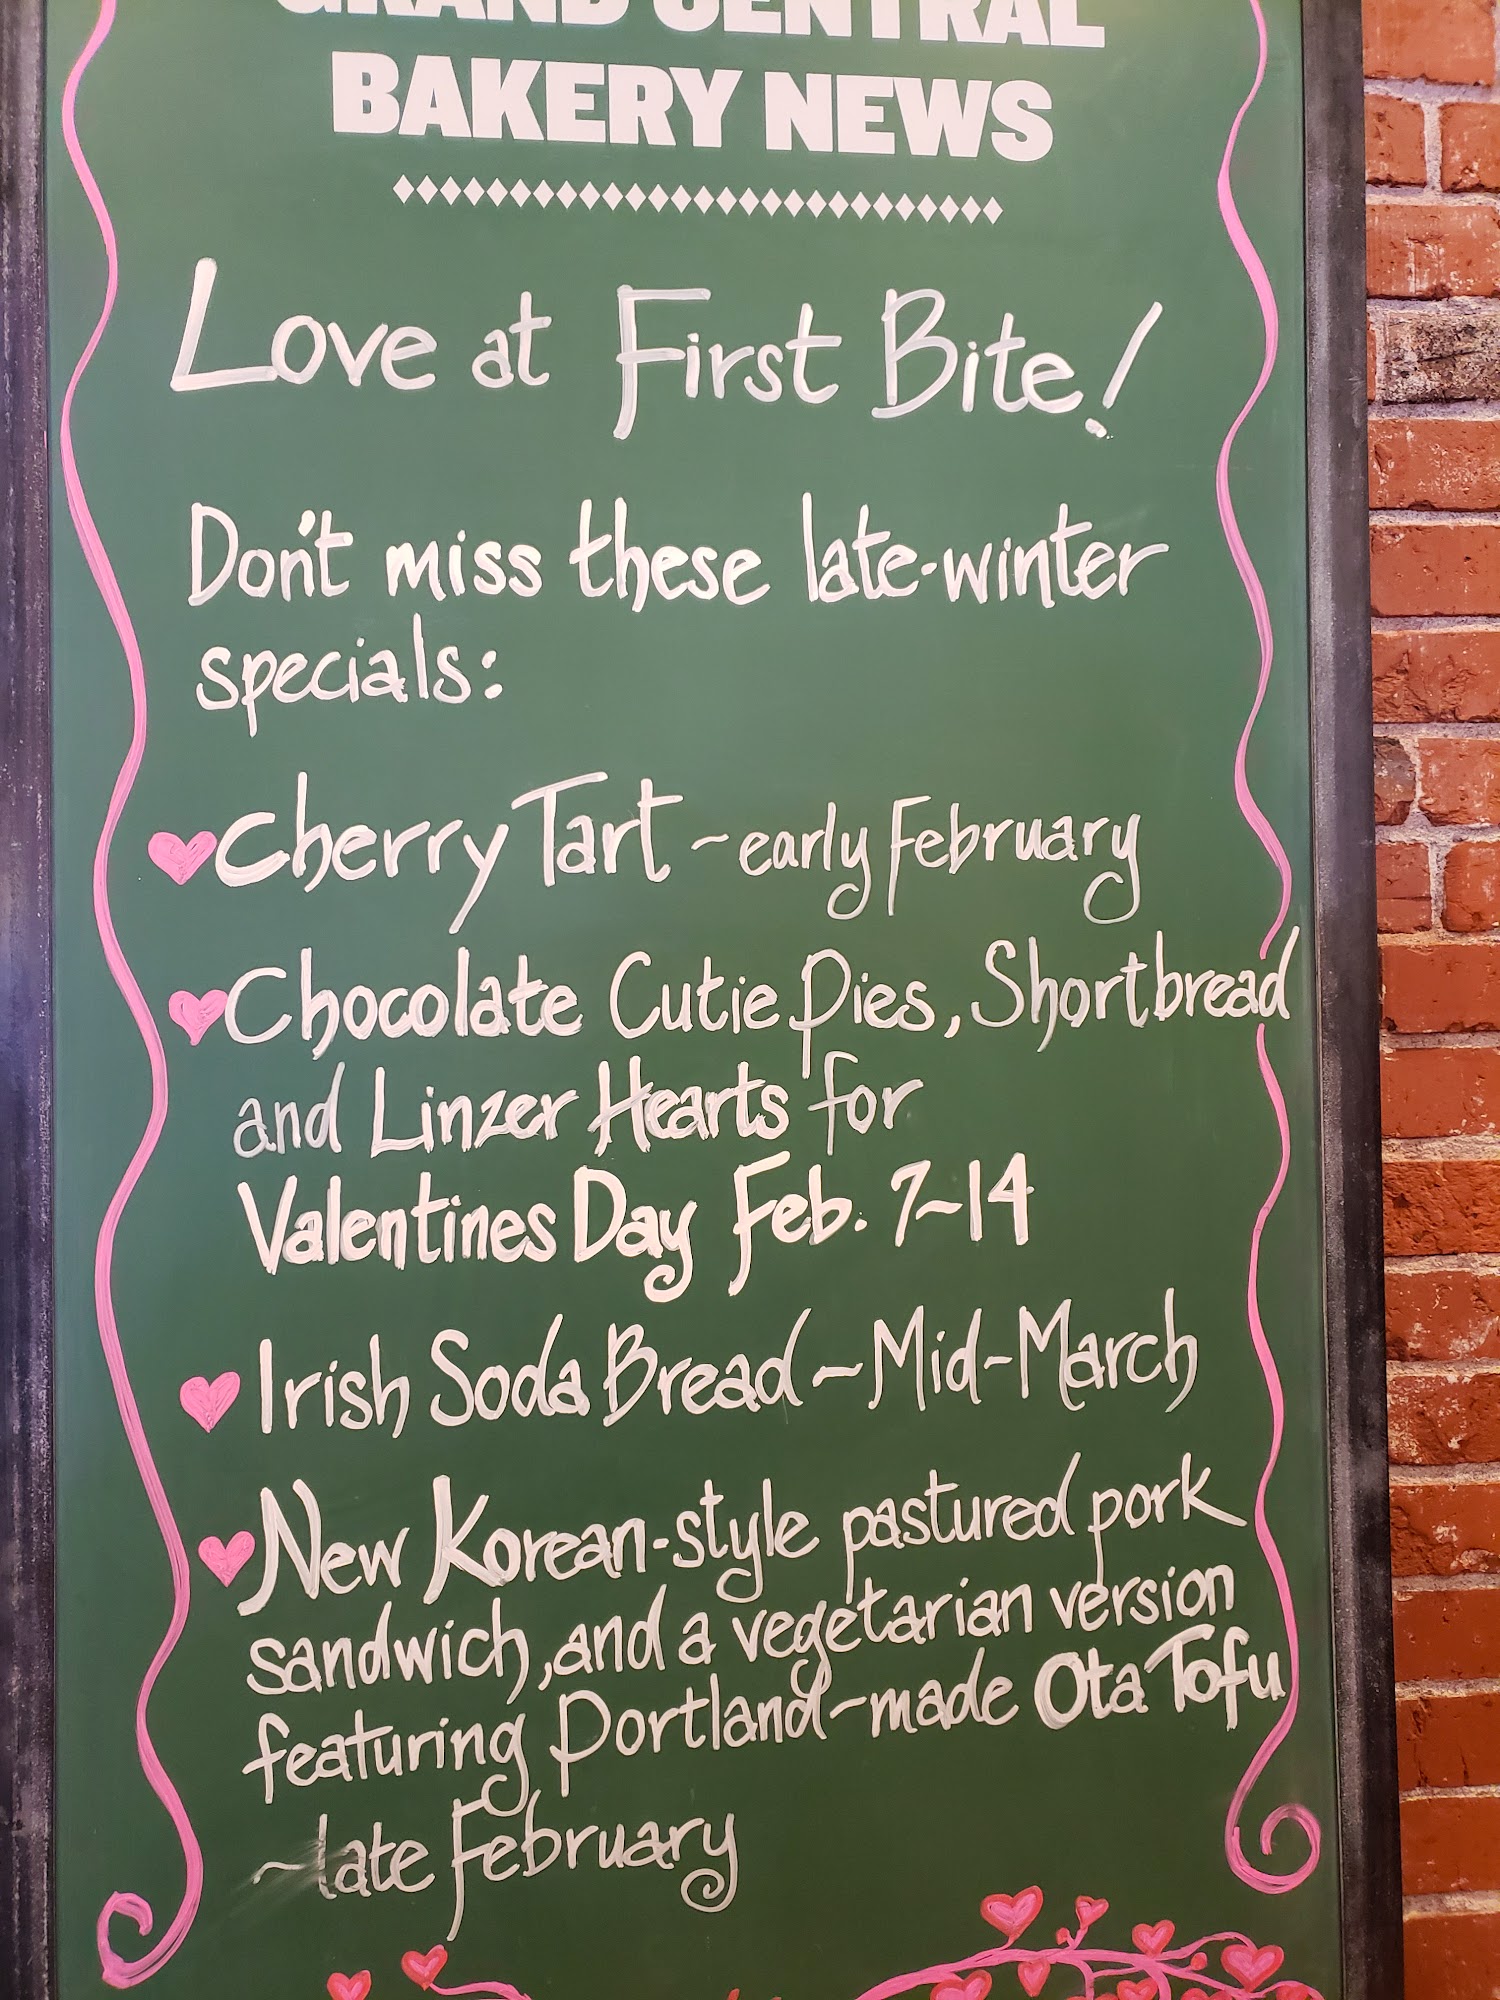 GRAND CENTRAL
BAKERY NEWS
Love at First Bite!
Don't miss these late-winter
specials:
Cherry Tart ~ early February
Chocolate Cutie Pies, Shortbread
and Linzer Hearts for
Valentines Day Feb. 7~14
Irish Soda Bread ~ Mid-March
New Korean-style pastured pork
sandwich, and a vegetarian version
featuring Portland-made Ota Tofu
~late February